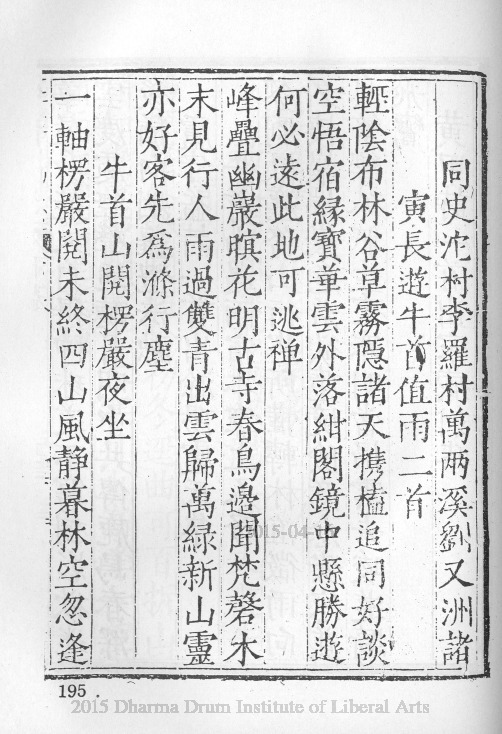 同史沱村李羅村萬两溪劉又洲諸
寅長遊牛首值雨二首
輕陰布林谷草霧隱諸天携榼追同好談
空悟宿緣寶華雲外落紺閣鏡中懸勝遊
何必遠此地可逃禅
峰疊幽巖暝花明古寺春鳥邊聞梵磬木
末見行人雨過雙青出雲歸萬綠新山靈
亦好客先爲滌行塵
牛首山閱楞嚴夜坐
一軸楞嚴閱未終四山風静暮林空忽逢
195
2015-04-
2015 Dharma Drum Institute of Liberal Arts